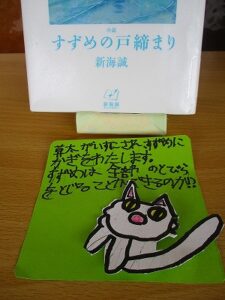 小説
すずめの戸締まり
新海誠
草太がいすにされ、すずめに
かぎをわたします。
すずめは 全部 のとびら
をとじる ことができるのか!?